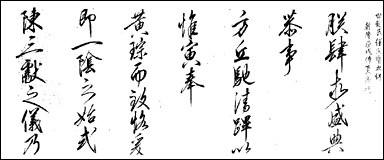 朕肆盛典
恭事
方丘馳清蹕以
惟寅奉
黃琮而致恪爰
即一陰之始式
陳三獻之儀乃